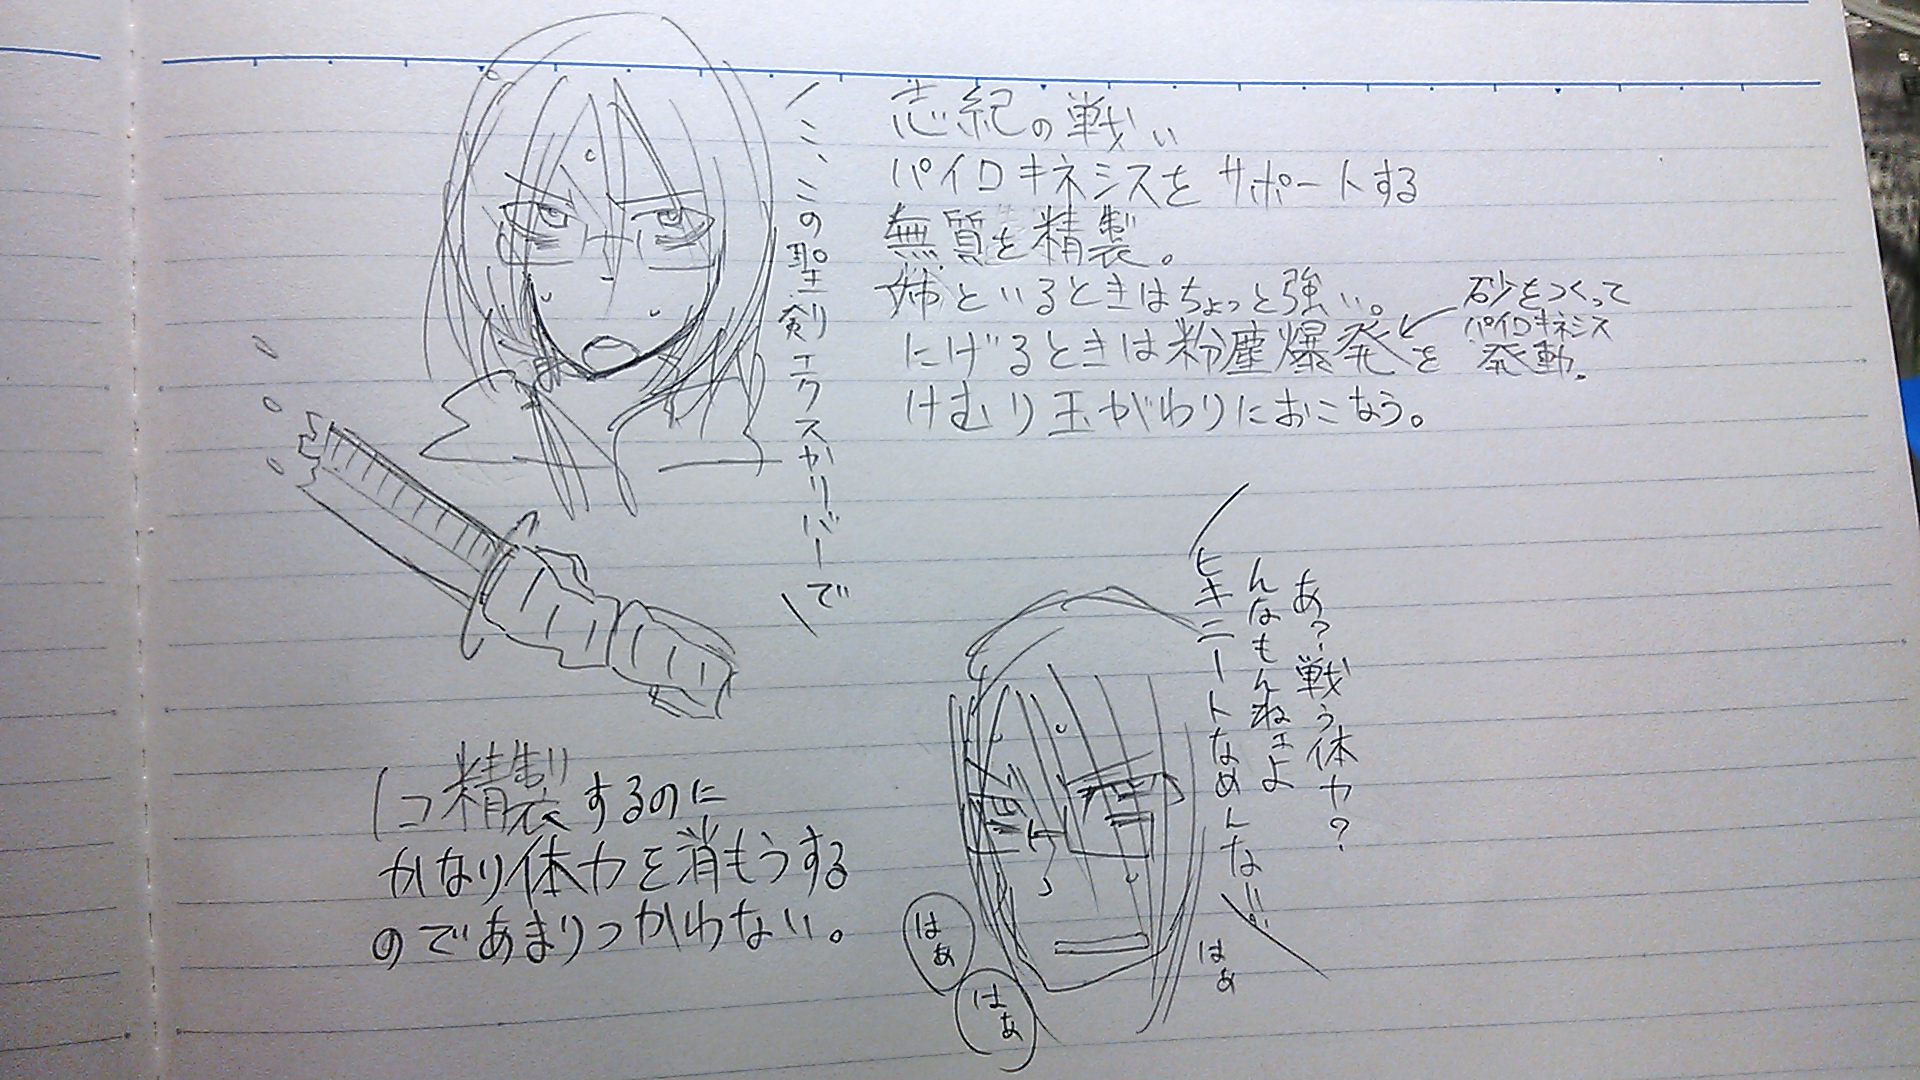 志紀の戦い
パイロキネシスをサポートする
無質を精製。
姉といるときはちょっと強い。
にげるときは粉塵爆発を
けむり玉がわりにおこなう。
砂をつくって
パイロキネシス
発動。
こ、この聖剣エクスカリバーで
あ?戦う体力?
んなもんねェよ
ヒキニートなめんな!!
はぁ
はぁ
はぁ
1コ精製するのに
かなり体力を消もうする
のであまりつかわない。